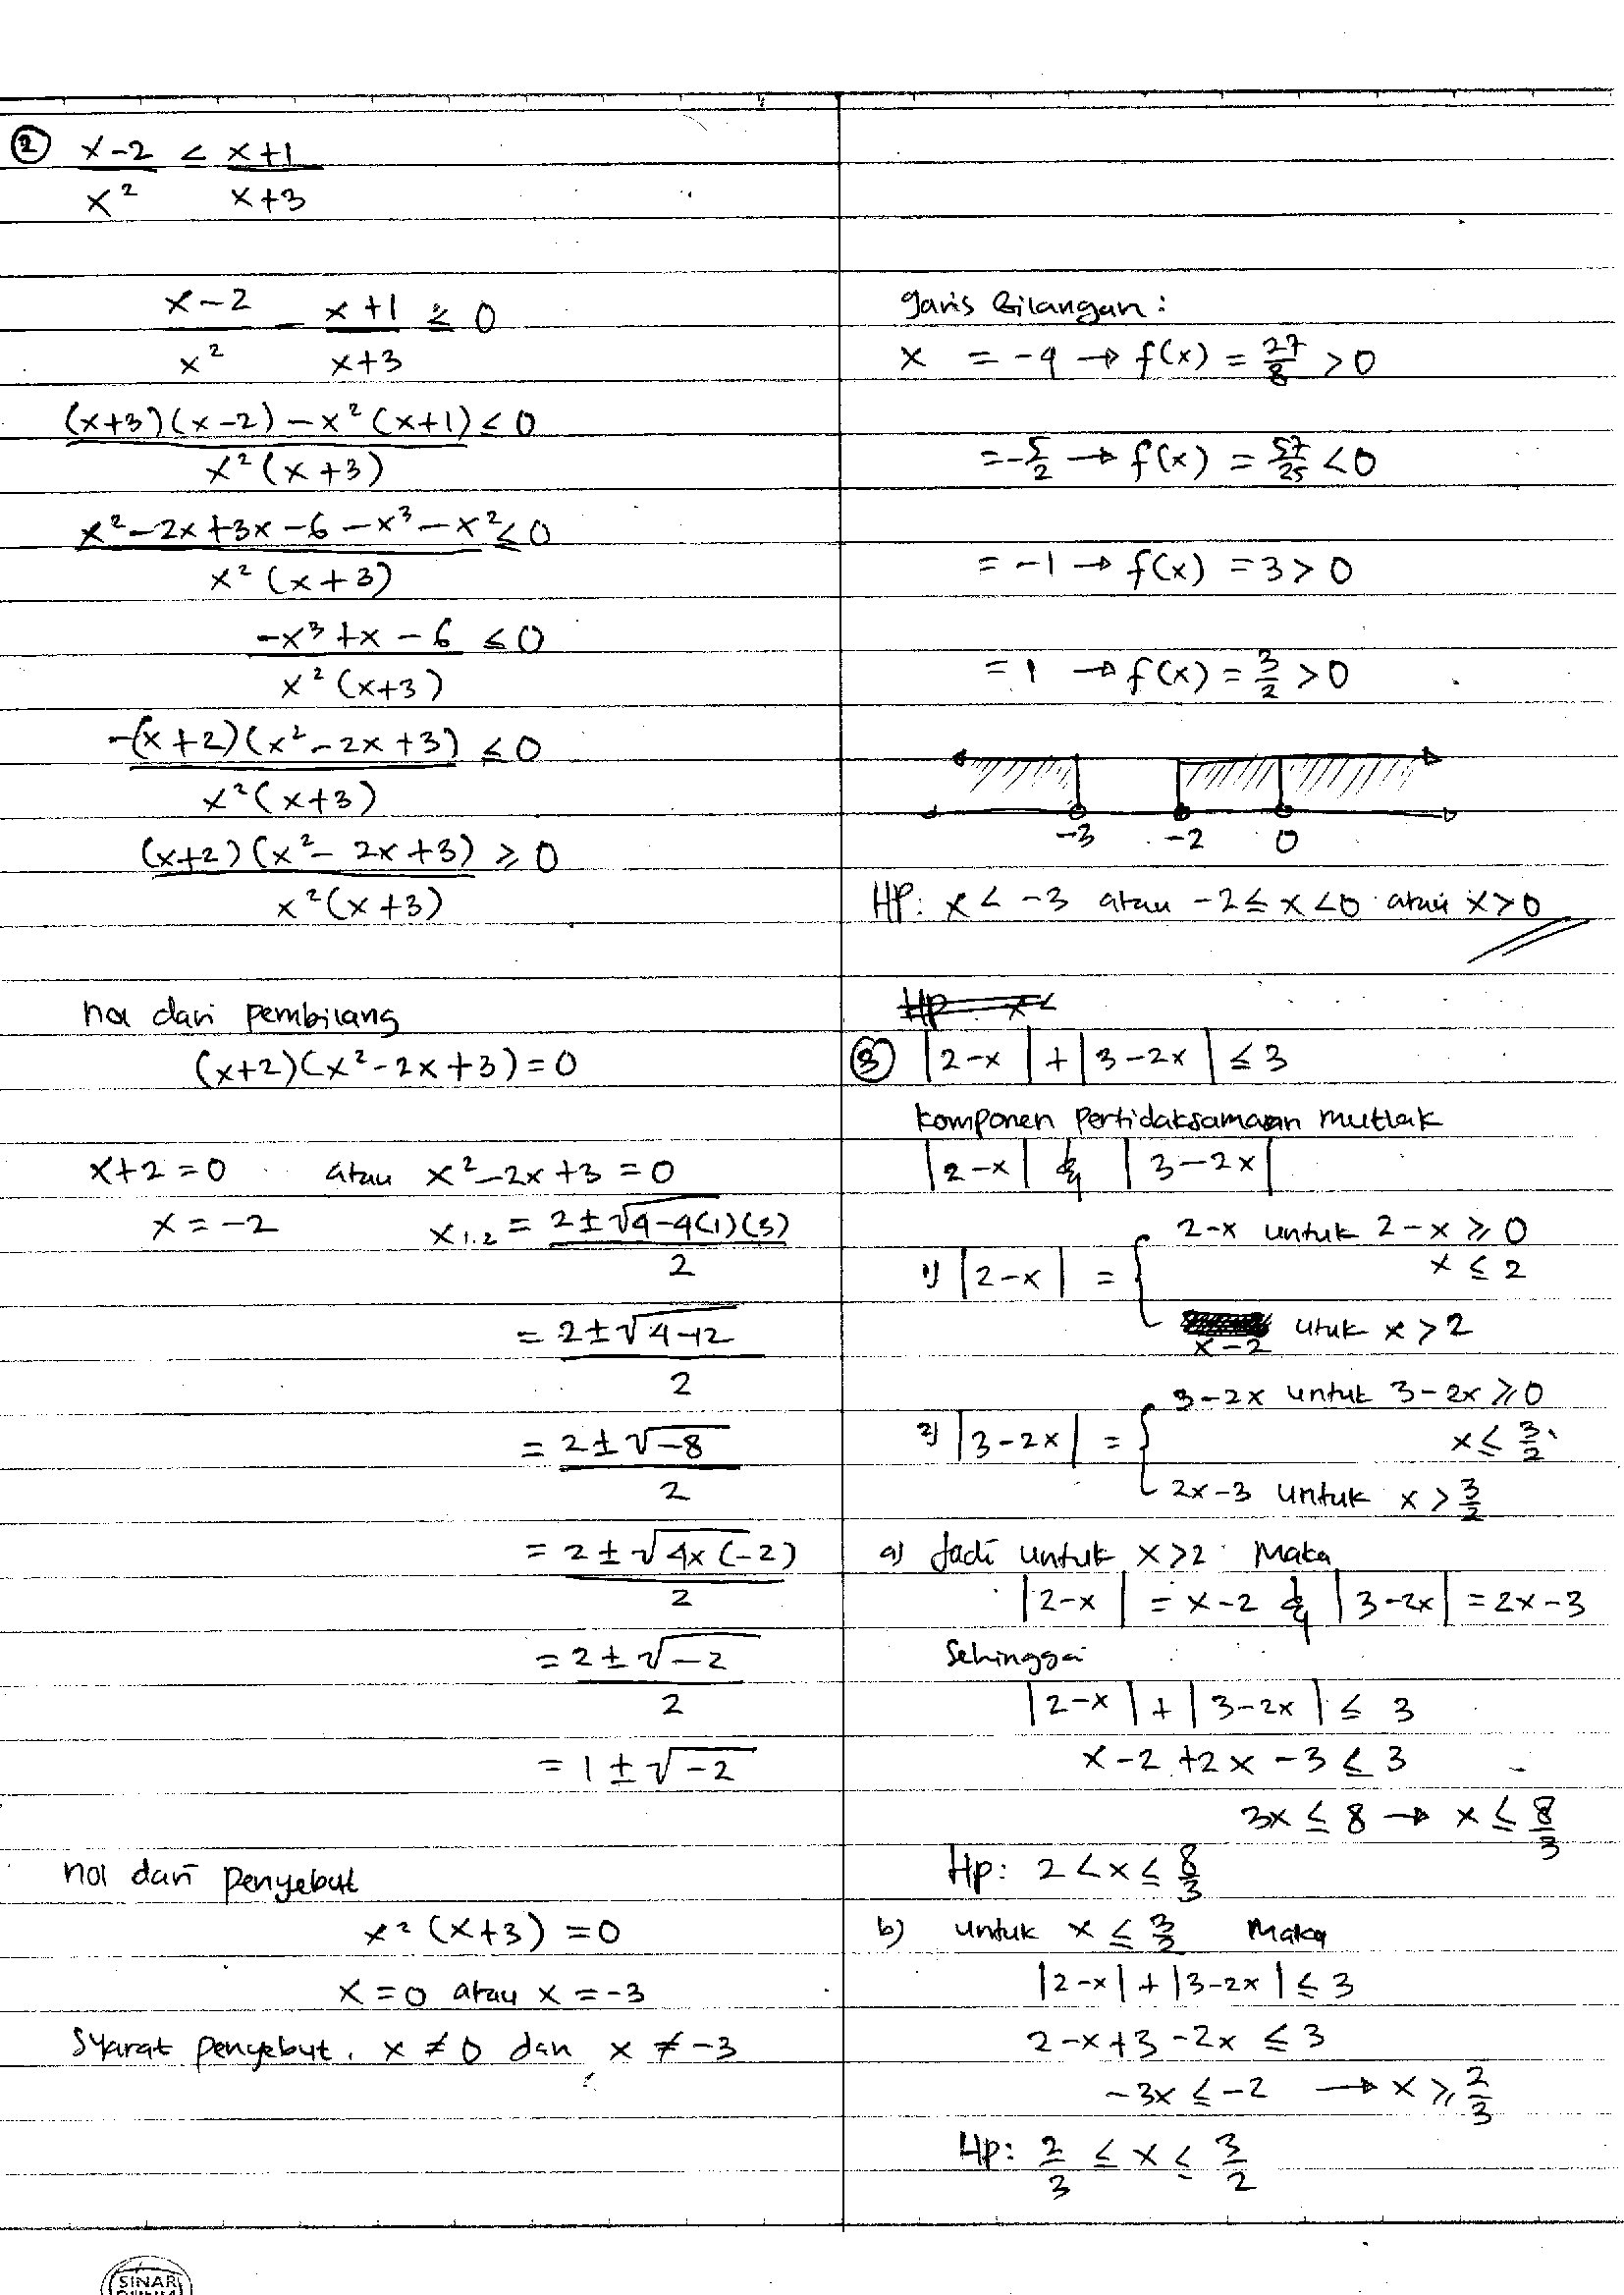 ② x-2 < x+1
x² x+3
x-2 - x+1 ≤ 0
x² x+3
(x+3)(x-2) - x²(x+1) ≤ 0
x²(x+3)
x² - 2x + 3x - 6 - x³ - x² ≤ 0
x²(x+3)
-x³ + x - 6 ≤ 0
x²(x+3)
-(x+2)(x² - 2x + 3) ≤ 0
x²(x+3)
(x+2)(x² - 2x + 3) ≥ 0
x²(x+3)
nol dari pembilang
(x+2)(x² - 2x + 3) = 0
x+2 = 0 atau x² - 2x + 3 = 0
x = -2 x₁,₂ = 2 ± √4-4(1)(3)
2
= 2 ± √4-12
2
= 2 ± √-8
2
= 2 ± √4x(-2)
2
= 2 ± √-2
2
= 1 ± √-2
nol dari Penyebut
x²(x+3) = 0
x = 0 atau x = -3
Syarat penyebut, x ≠ 0 dan x ≠ -3
garis Bilangan:
x = -4 → f(x) = 27/8 > 0
= -5/2 → f(x) = 57/25 < 0
= -1 → f(x) = 3 > 0
= 1 → f(x) = 3/2 > 0
-3 -2 0
HP: x < -3 atau -2 ≤ x < 0 atau x > 0
HP x <
③ |2-x| + |3-2x| ≤ 3
komponen pertidaksamaan mutlak
|2-x| & |3-2x|
2-x untuk 2-x ≥ 0
1) |2-x| = { x ≤ 2
x-2 utuk x > 2
3-2x untuk 3-2x ≥ 0
2) |3-2x| = { x ≤ 3/2
2x-3 untuk x > 3/2
a) Jadi untuk x > 2 Maka
|2-x| = x-2 & |3-2x| = 2x-3
Sehingga
|2-x| + |3-2x| ≤ 3
x-2 + 2x - 3 ≤ 3
3x ≤ 8 → x ≤ 8/3
Hp: 2 < x ≤ 8/3
b) untuk x ≤ 3/2 Maka
|2-x| + |3-2x| ≤ 3
2-x+3-2x ≤ 3
-3x ≤ -2 → x ≥ 2/3
Hp: 2/3 ≤ x ≤ 3/2
SINAR